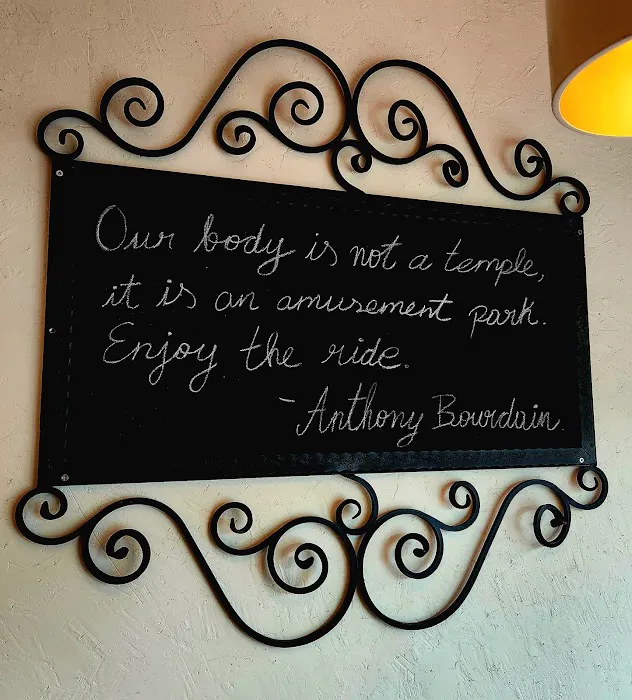 Our body is not a temple,
it is an amusement park.
Enjoy the ride.
- Anthony Bourdain.